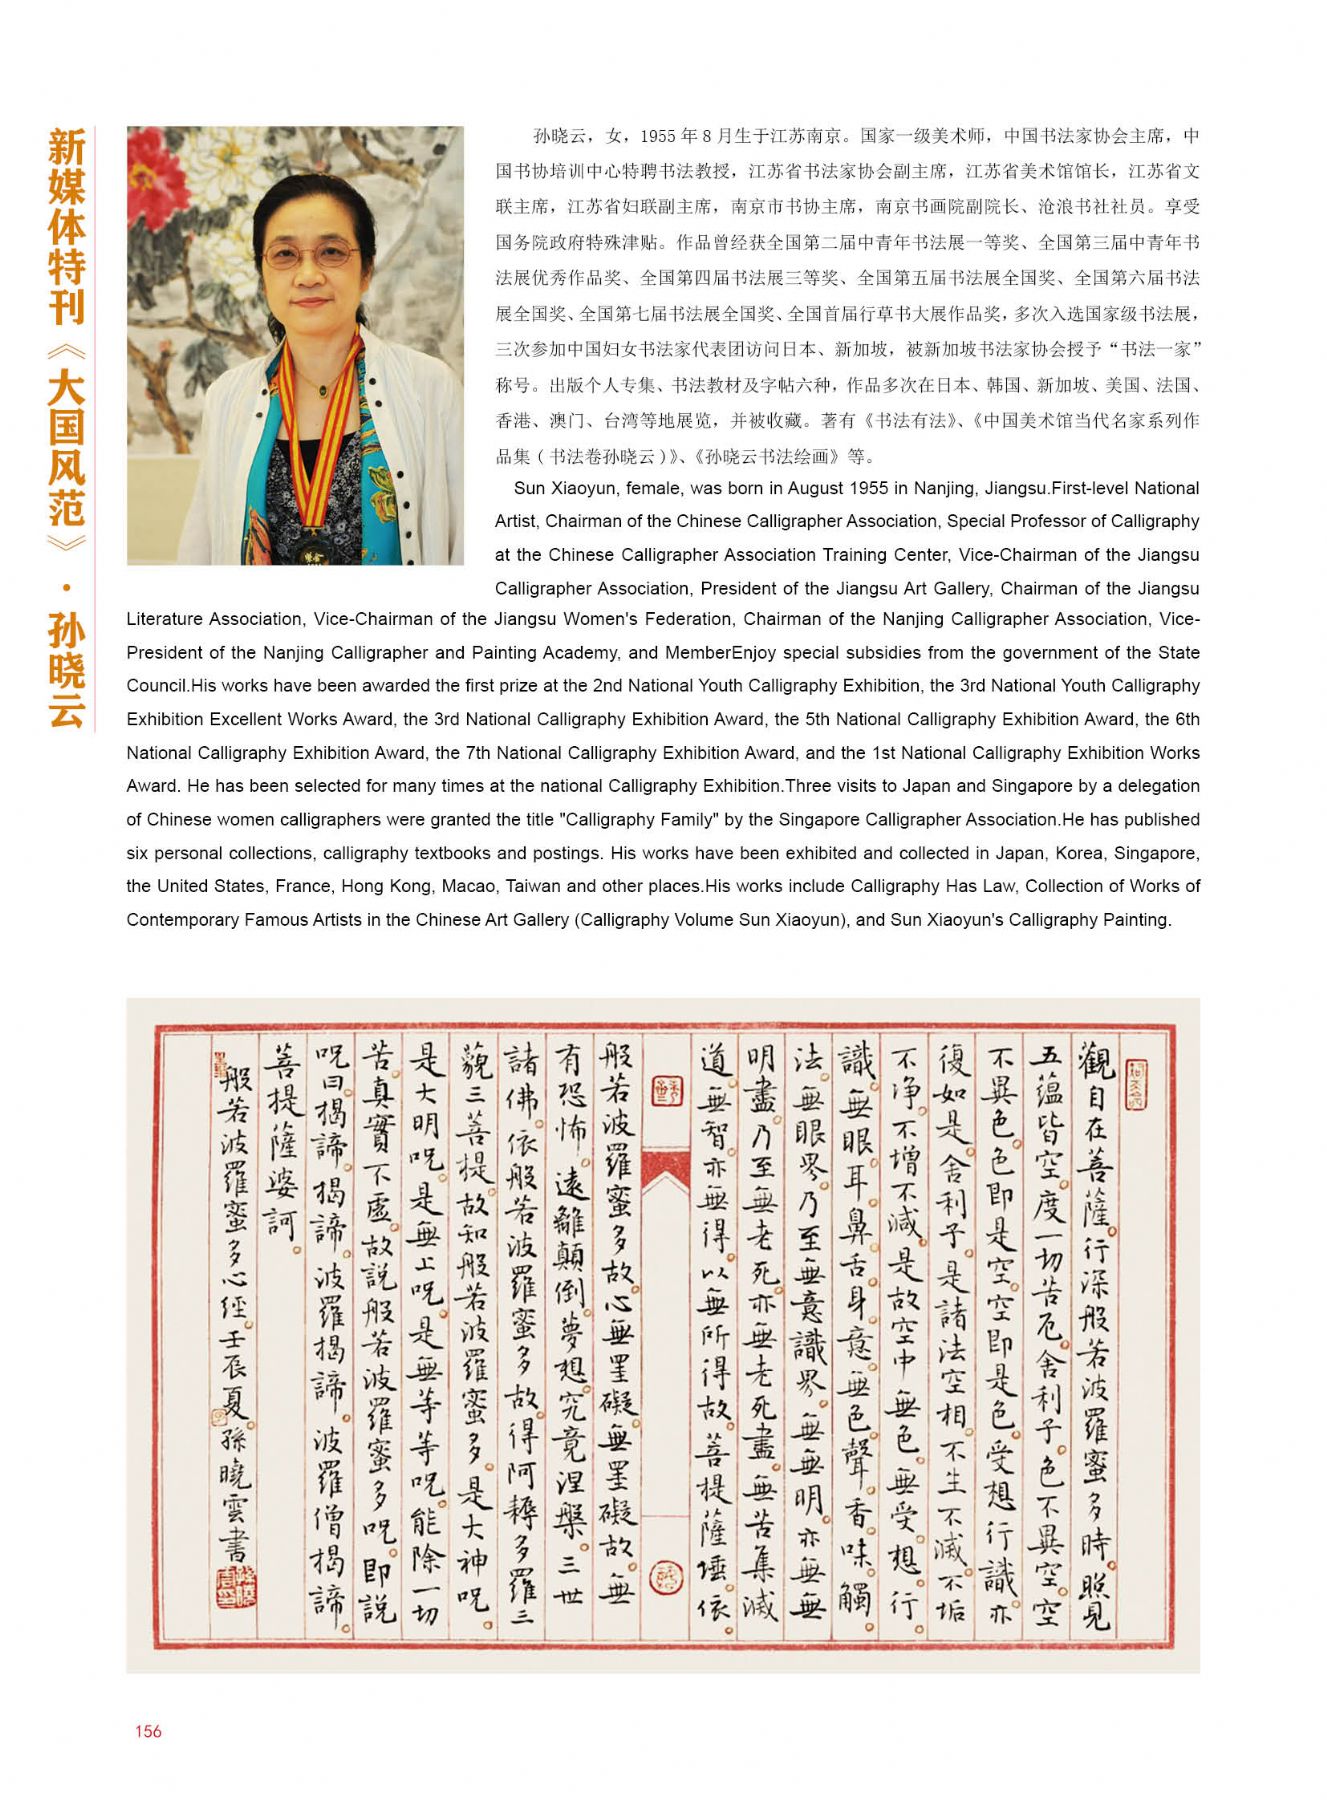 新媒体特刊《大国风范》·孙晓云
孙晓云，女，1955 年 8 月生于江苏南京。国家一级美术师，中国书法家协会主席，中
国书协培训中心特聘书法教授，江苏省书法家协会副主席，江苏省美术馆馆长，江苏省文
联主席，江苏省妇联副主席，南京市书协主席，南京书画院副院长、沧浪书社社员。享受
国务院政府特殊津贴。作品曾经获全国第二届中青年书法展一等奖、全国第三届中青年书
法展优秀作品奖、全国第四届书法展三等奖、全国第五届书法展全国奖、全国第六届书法
展全国奖、全国第七届书法展全国奖、全国首届行草书大展作品奖，多次入选国家级书法展，
三次参加中国妇女书法家代表团访问日本、新加坡，被新加坡书法家协会授予“书法一家”
称号。出版个人专集、书法教材及字帖六种，作品多次在日本、韩国、新加坡、美国、法国、
香港、澳门、台湾等地展览，并被收藏。著有《书法有法》、《中国美术馆当代名家系列作
品集（书法卷孙晓云）》、《孙晓云书法绘画》等。
Sun Xiaoyun, female, was born in August 1955 in Nanjing, Jiangsu.First-level National
Artist, Chairman of the Chinese Calligrapher Association, Special Professor of Calligraphy
at the Chinese Calligrapher Association Training Center, Vice-Chairman of the Jiangsu
Calligrapher Association, President of the Jiangsu Art Gallery, Chairman of the Jiangsu
Literature Association, Vice-Chairman of the Jiangsu Women's Federation, Chairman of the Nanjing Calligrapher Association, Vice-
President of the Nanjing Calligrapher and Painting Academy, and MemberEnjoy special subsidies from the government of the State
Council.His works have been awarded the first prize at the 2nd National Youth Calligraphy Exhibition, the 3rd National Youth Calligraphy
Exhibition Excellent Works Award, the 3rd National Calligraphy Exhibition Award, the 5th National Calligraphy Exhibition Award, the 6th
National Calligraphy Exhibition Award, the 7th National Calligraphy Exhibition Award, and the 1st National Calligraphy Exhibition Works
Award. He has been selected for many times at the national Calligraphy Exhibition.Three visits to Japan and Singapore by a delegation
of Chinese women calligraphers were granted the title "Calligraphy Family" by the Singapore Calligrapher Association.He has published
six personal collections, calligraphy textbooks and postings. His works have been exhibited and collected in Japan, Korea, Singapore,
the United States, France, Hong Kong, Macao, Taiwan and other places.His works include Calligraphy Has Law, Collection of Works of
Contemporary Famous Artists in the Chinese Art Gallery (Calligraphy Volume Sun Xiaoyun), and Sun Xiaoyun's Calligraphy Painting.
觀自在菩薩。行深般若波羅蜜多時。照見
五蘊皆空。度一切苦厄。舍利子。色不異空。空
不異色。色即是空。空即是色。受想行識。亦
復如是。舍利子。是諸法空相。不生不滅。不垢
不净。不增不減。是故空中無色。無受。想。行。
識。無眼。耳。鼻。舌。身。意。無色。聲。香。味。觸。
法。無眼界。乃至無意識界。無無明。亦無無
明盡。乃至無老死。亦無老死盡。無苦集滅
道。無智。亦無得。以無所得故。菩提薩埵。依
般若波羅蜜多故。心無罣礙。無罣礙故。無
有恐怖。遠離顛倒。夢想。究竟涅槃。三世
諸佛。依般若波羅蜜多故。得阿耨多羅三
藐三菩提。故知般若波羅蜜多。是大神呪。
是大明呪。是無上呪。是無等等呪。能除一切
苦。真實不虛。故說般若波羅蜜多呪。即說
呪曰。揭諦。揭諦。波羅揭諦。波羅僧揭諦。
菩提薩婆訶。
般若波羅蜜多心經。壬辰夏。孫曉雲書
156